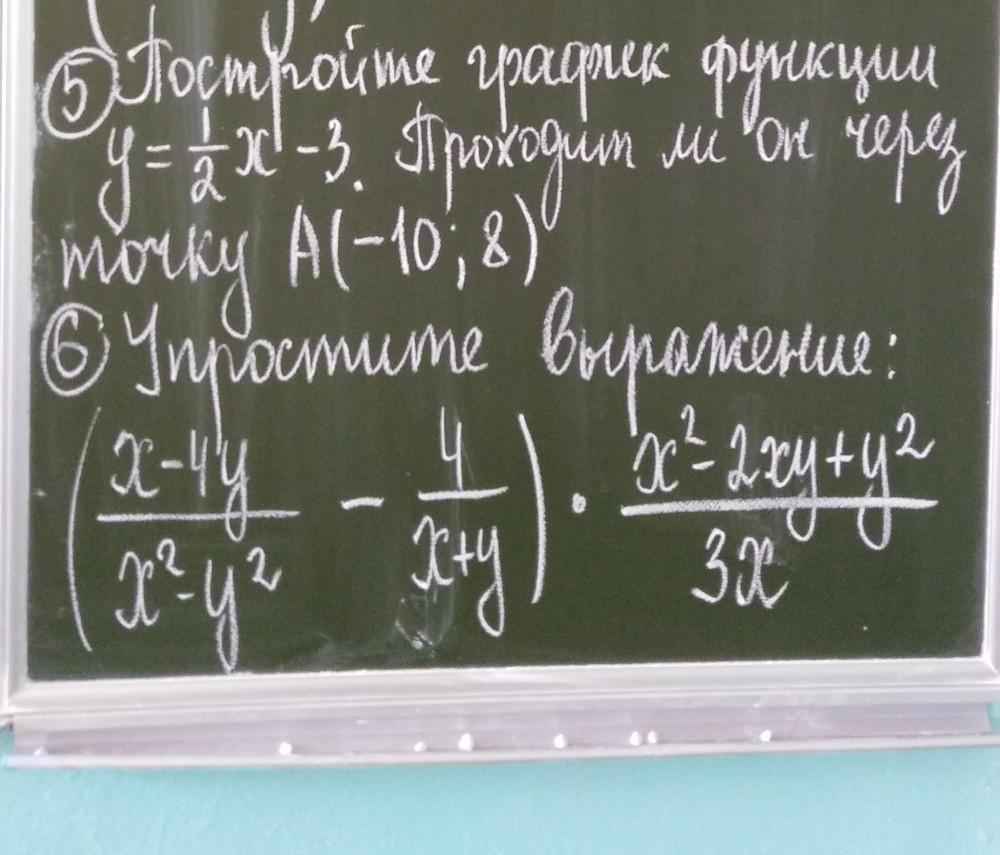 ⑤ Постройте график функции
y = 1/2 x - 3. Проходит ли он через
точку A(-10; 8)
⑥ Упростите выражение:
((x-4y)/(x²-y²) - 4/(x+y)) · (x²-2xy+y²)/(3x)